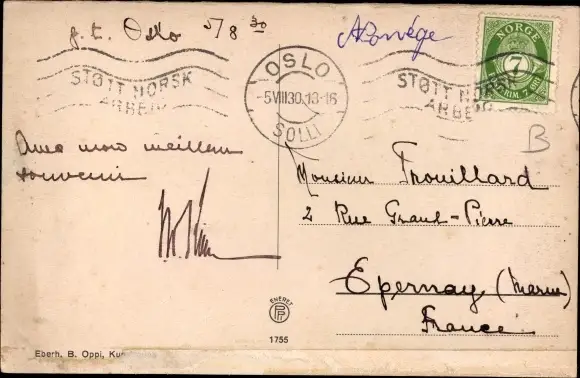 p. t. Oslo 5/8 30
Norvége
NORGE
7
STØTT NORSK
ARBEID
OSLO
-5VIII30.13-16
SOLLI
STØTT NORSK
ARBEID
B
Avec mon meilleur
souvenir
Monsieur Trouillard
2 Rue Grand-Pierre
Epernay (Marne)
France
ENERET
1755
Eberh. B. Oppi,